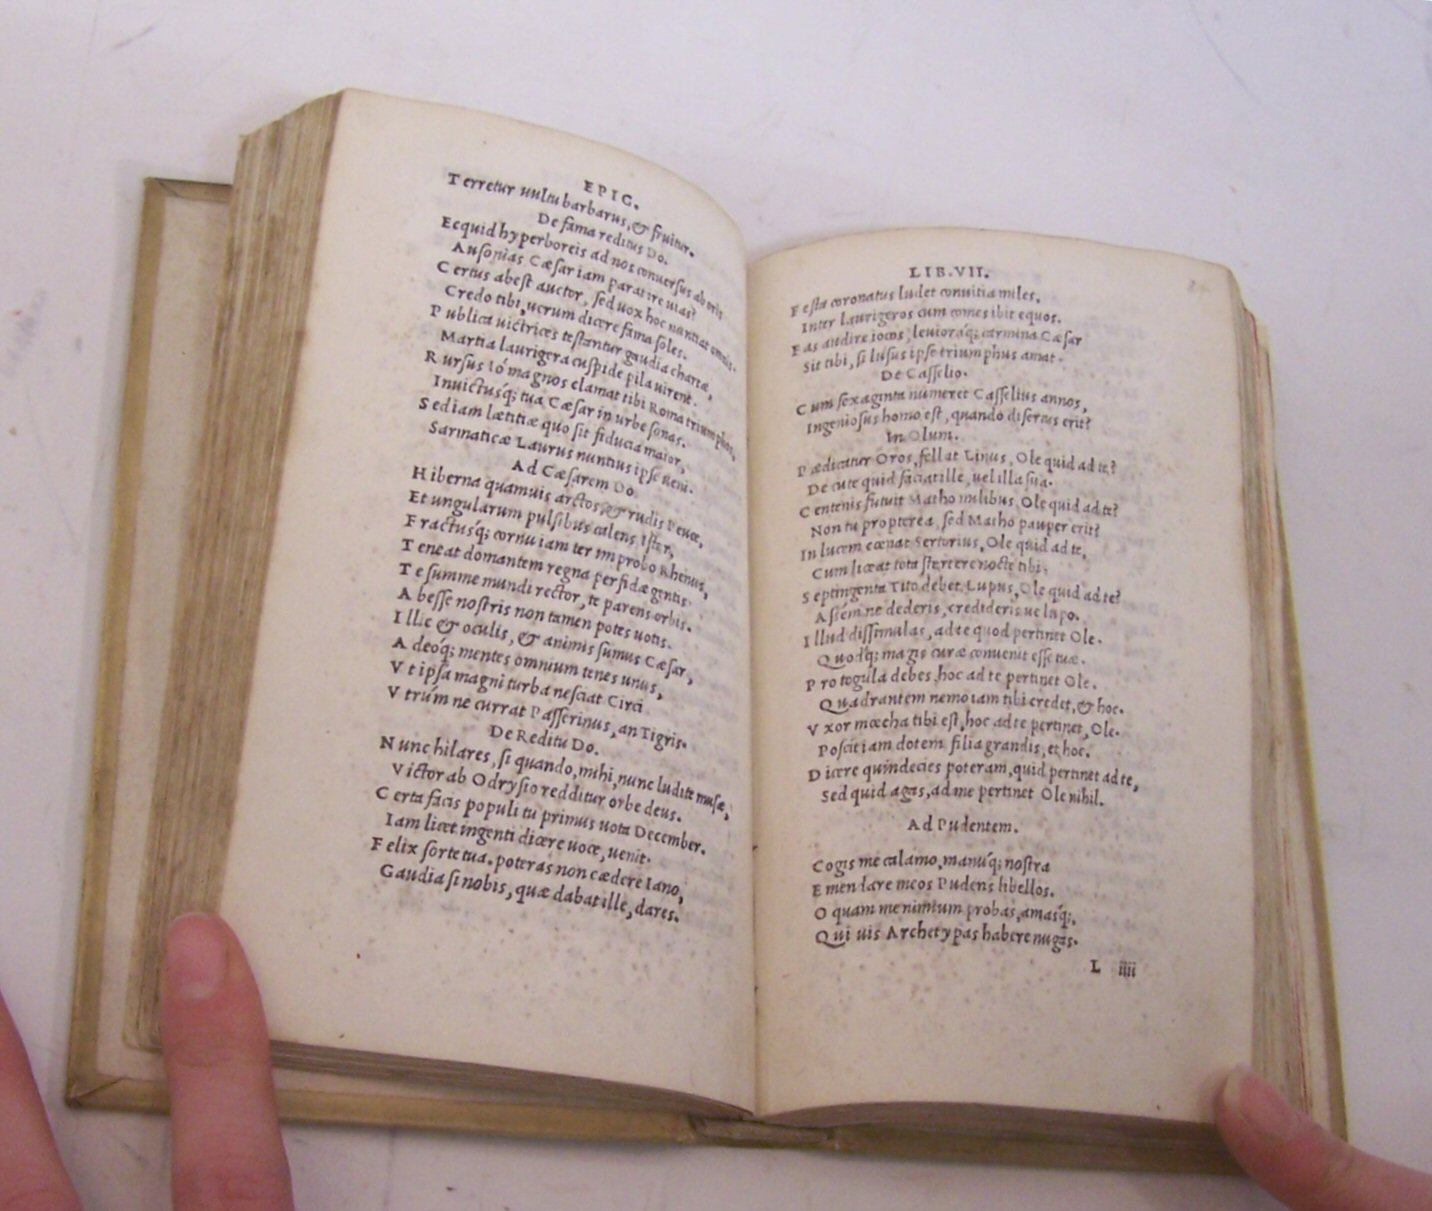 EPIG.
Terretur uultu barbarus, & fruitur.
De fama reditus Do.
Ecquid hyperboreis ad nos conuersus ab oris
Ausonias Cæsar iam parat ire uias?
Certus abest auctor, sed uox hoc nuntiat omnis.
Credo tibi, uerum dicere fama soles.
Publica uictrices testantur gaudia chartæ,
Martia laurigera cuspide pila uirent.
Rursus Ió magnos clamat tibi Roma triumphos,
Inuictusq́; tua Cæsar in urbe sonas.
Sed iam lætitiæ quo sit fiducia maior,
Sarmaticæ Laurus nuntius ipse ueni.
Ad Cæsarem Do.
Hiberna quamuis arctos, & rudis Peuce,
Et ungularum pulsibus calens Ister,
Fractusq́; cornu iam ter improbo Rhenus,
Teneat domantem regna perfidæ gentis
Te summe mundi rector, te parens orbis.
Abesse nostris non tamen potes uotis.
Illic & oculis, & animis sumus Cæsar,
Adeoq́; mentes omnium tenes unus,
Vt ipsa magni turba nesciat Circi
Vtrúm ne currat Passerinus, an Tigris.
De Reditu Do.
Nunc hilares, si quando, mihi, nunc ludite musæ,
Victor ab Odrysio redditur orbe deus.
Certa facis populi tu primus uota December.
Iam licet ingenti dicere uoce, uenit.
Felix sorte tua. poteras non cædere Iano,
Gaudia si nobis, quæ dabat ille, dares.
LIB. VII.
Festa coronatus ludet conuitia miles,
Inter laurigeros cum comes ibit equos.
Fas audire iocos, leuioraq́; carmina Cæsar
Sit tibi, si lusus ipse triumphus amat.
De Casselio.
Cum sexaginta numeret Casselius annos,
Ingeniosus homo est, quando disertus erit?
In Olum.
Pædicatur Oros, fellat Linus, Ole quid ad te?
De cute quid faciat ille, uel illa sua.
Centenis futuit Matho milibus, Ole quid ad te?
Non tu propterea, sed Matho pauper erit?
In lucem cœnat Sertorius, Ole quid ad te,
Cum liceat tota stertere nocte tibi.
Septingenta Tito debet Lupus, Ole quid ad te?
Assem ne dederis, credideris ue lupo.
Illud dissimulas, ad te quod pertinet Ole.
Quodq́; magis curæ conuenit esse tuæ.
Pro togula debes, hoc ad te pertinet Ole.
Quadrantem nemo iam tibi credet, & hoc.
Vxor mœcha tibi est, hoc ad te pertinet, Ole.
Poscit iam dotem filia grandis, et hoc.
Dicere quindecies poteram, quid pertinet ad te,
Sed quid agas, ad me pertinet Ole nihil.
Ad Pudentem.
Cogis me calamo, manuq́; nostra
Emendare meos Pudens libellos.
O quam me nimium probas, amasq́;,
Qui uis Archetypas habere nugas.
L iiii